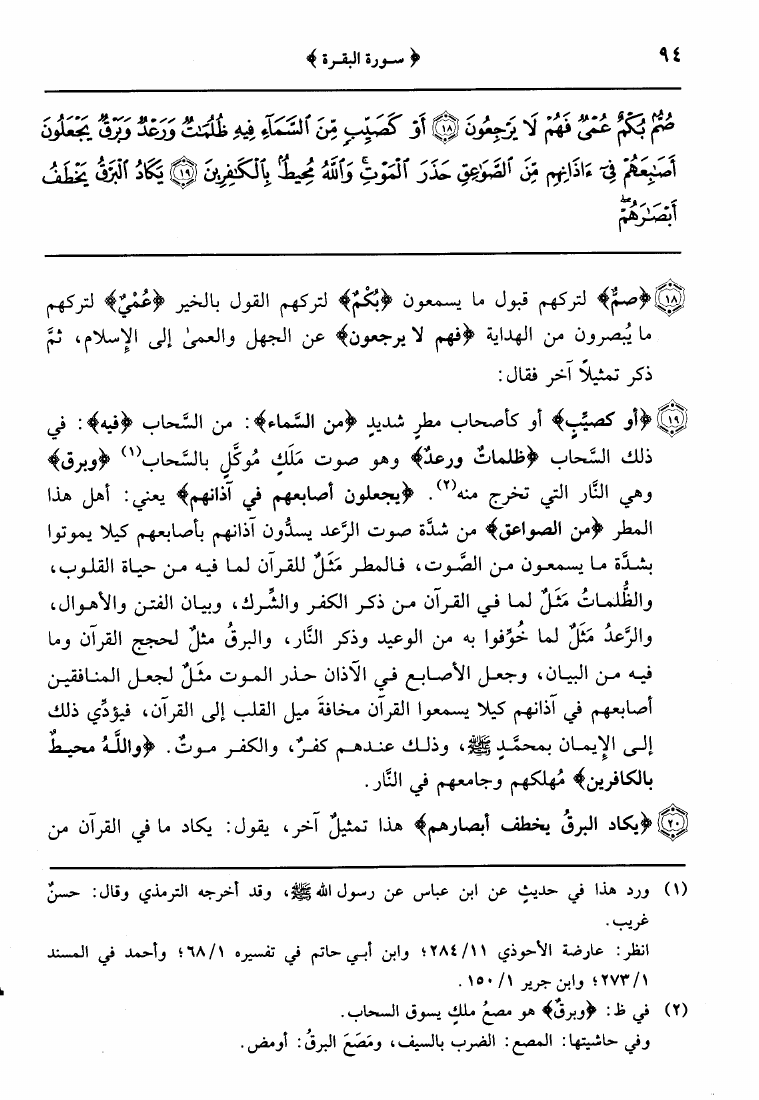 ٩٤ ﴿ سورة البقرة ﴾
صُمٌّۢ بُكْمٌ عُمْىٌ فَهُمْ لَا يَرْجِعُونَ ١٨ أَوْ كَصَيِّبٍ مِّنَ ٱلسَّمَآءِ فِيهِ ظُلُمَٰتٌ وَرَعْدٌ وَبَرْقٌ يَجْعَلُونَ
أَصَٰبِعَهُمْ فِىٓ ءَاذَانِهِم مِّنَ ٱلصَّوَٰعِقِ حَذَرَ ٱلْمَوْتِ ۚ وَٱللَّهُ مُحِيطٌۢ بِٱلْكَٰفِرِينَ ١٩ يَكَادُ ٱلْبَرْقُ يَخْطَفُ
أَبْصَٰرَهُمْ ۖ
١٨ ﴿صمٌّ﴾ لتركهم قبول ما يسمعون ﴿بُكْمٌ﴾ لتركهم القول بالخير ﴿عُمْيٌ﴾ لتركهم
ما يُبصرون من الهداية ﴿فهم لا يرجعون﴾ عن الجهل والعمىٰ إلى الإِسلام، ثمَّ
ذكر تمثيلاً آخر فقال:
١٩ ﴿أو كصيِّبٍ﴾ أو كأصحاب مطرٍ شديدٍ ﴿من السَّماء﴾: من السَّحاب ﴿فيه﴾: في
ذلك السَّحاب ﴿ظلماتٌ ورعدٌ﴾ وهو صوت مَلَكٍ مُوكَّلٍ بالسَّحاب(١) ﴿وبرق﴾
وهي النَّار التي تخرج منه(٢). ﴿يجعلون أصابعهم في آذانهم﴾ يعني: أهل هذا
المطر ﴿من الصواعق﴾ من شدَّة صوت الرَّعد يسدُّون آذانهم بأصابعهم كيلا يموتوا
بشدَّة ما يسمعون من الصَّوت، فالمطر مَثَلٌ للقرآن لما فيه من حياة القلوب،
والظُّلماتُ مَثَلٌ لما في القرآن من ذكر الكفر والشِّرك، وبيان الفتن والأهوال،
والرَّعدُ مَثَلٌ لما خُوِّفوا به من الوعيد وذكر النَّار، والبرقُ مثلٌ لحجج القرآن وما
فيه من البيان، وجعل الأصابع في الآذان حذر الموت مثَلٌ لجعل المنافقين
أصابعهم في آذانهم كيلا يسمعوا القرآن مخافةَ ميل القلب إلى القرآن، فيؤدِّي ذلك
إلى الإِيمان بمحمَّدٍ ﷺ، وذلك عندهم كفرٌ، والكفر موتٌ. ﴿واللَّهُ محيطٌ
بالكافرين﴾ مُهلكهم وجامعهم في النَّار.
٢٠ ﴿يكاد البرقُ يخطف أبصارهم﴾ هذا تمثيلٌ آخر، يقول: يكاد ما في القرآن من
(١) ورد هذا في حديثٍ عن ابن عباس عن رسول الله ﷺ، وقد أخرجه الترمذي وقال: حسنٌ
غريب.
انظر: عارضة الأحوذي ١١/ ٢٨٤؛ وابن أبي حاتم في تفسيره ١/ ٦٨؛ وأحمد في المسند
١/ ٢٧٣؛ وابن جرير ١/ ١٥٠.
(٢) في ظ: ﴿وبرقٌ﴾ هو مصعُ ملكٍ يسوق السحاب.
وفي حاشيتها: المصع: الضرب بالسيف، ومَصَعَ البرقُ: أومض.